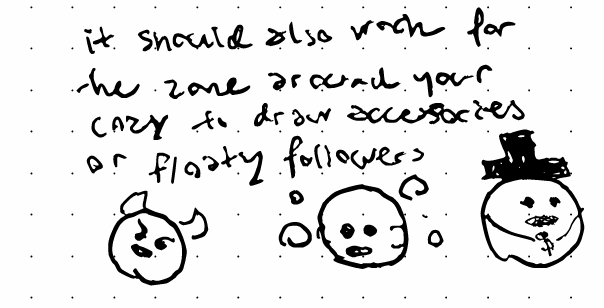 it should also work for
the zone around your
cozy to draw accessories
or floaty followers